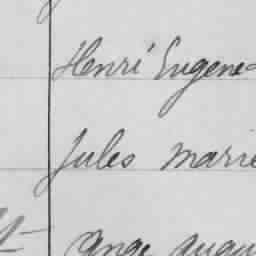 Henri Eugene
Jules Marie
Ange